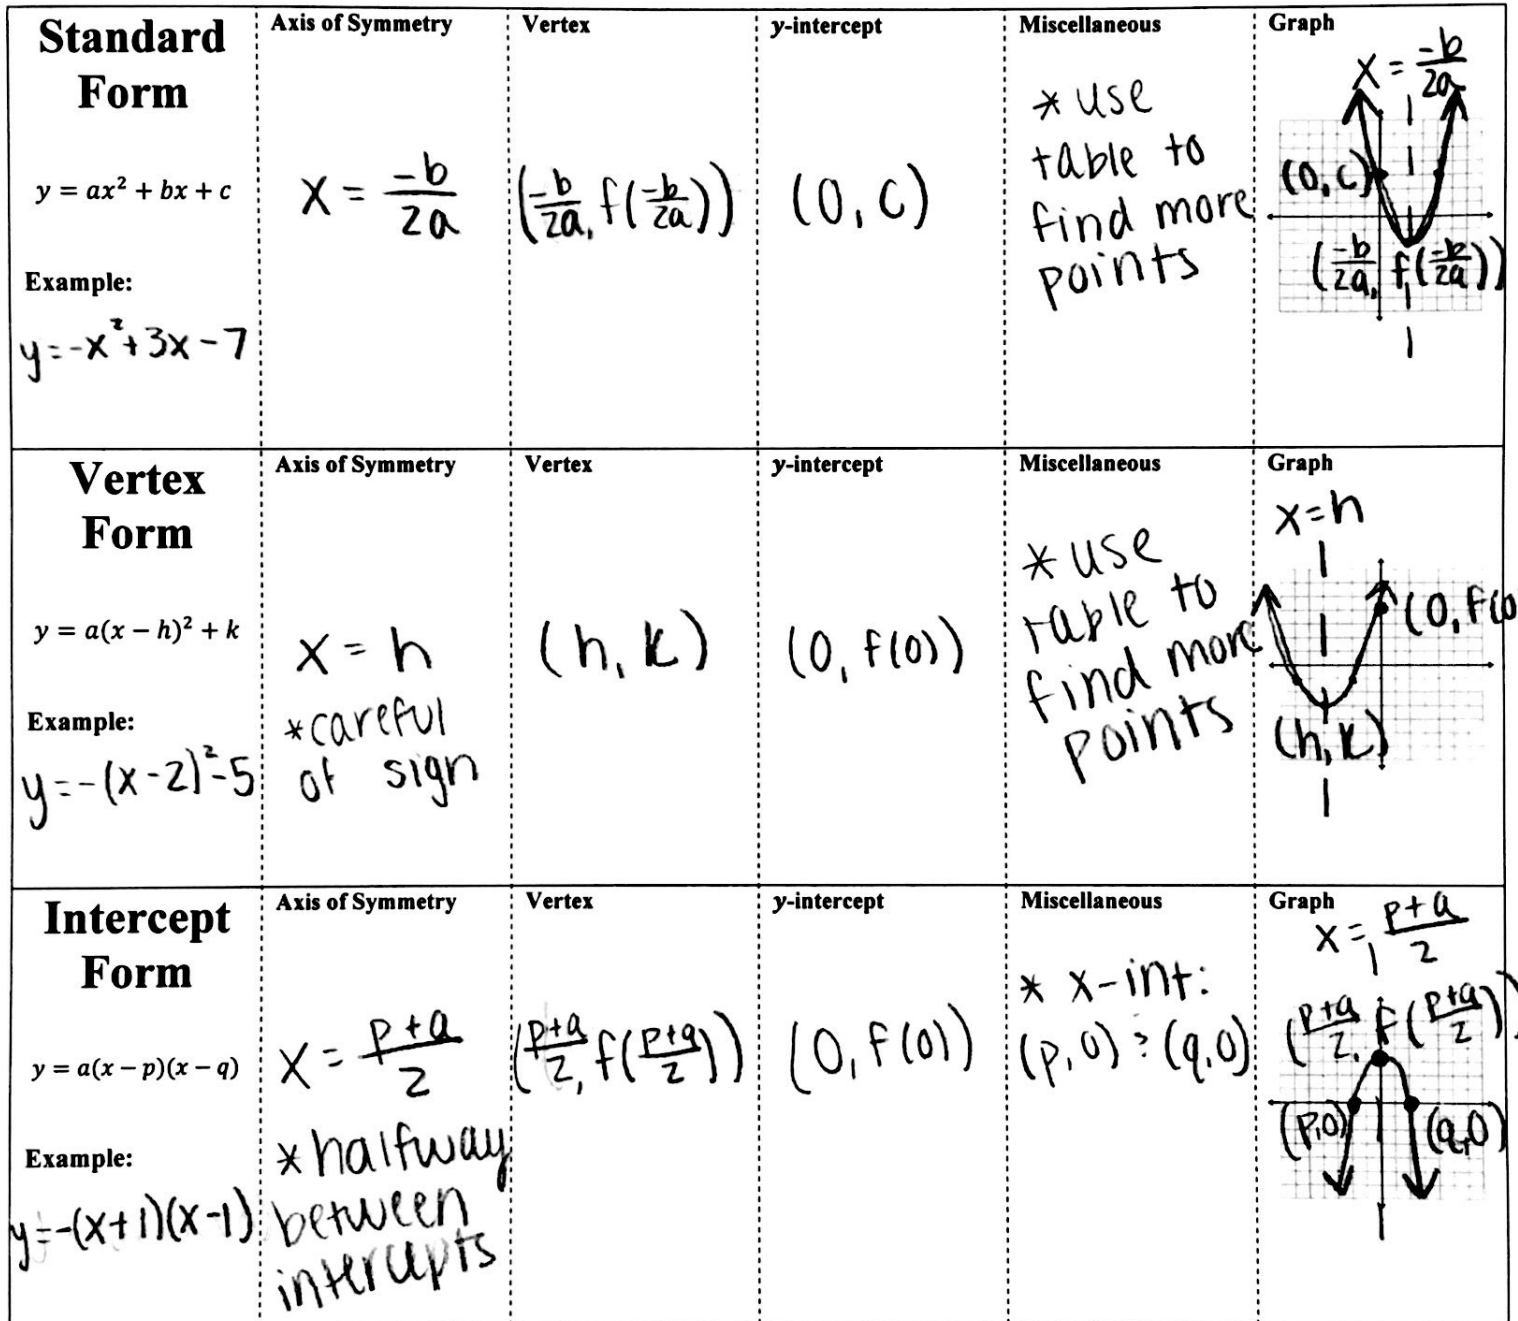 Standard
Form
y = ax² + bx + c
Example:
y = -x² + 3x - 7
Axis of Symmetry
x = -b/2a
Vertex
(-b/2a, f(-b/2a))
y-intercept
(0, c)
Miscellaneous
* use
table to
find more
points
Graph
x = -b/2a
(0, c)
(-b/2a, f(-b/2a))
Vertex
Form
y = a(x − h)² + k
Example:
y = -(x - 2)² - 5
Axis of Symmetry
x = h
* careful
of sign
Vertex
(h, k)
y-intercept
(0, f(0))
Miscellaneous
* use
table to
find more
points
Graph
x = h
(0, f(0
(h, k)
Intercept
Form
y = a(x − p)(x − q)
Example:
y = -(x + 1)(x - 1)
Axis of Symmetry
x = p + q/2
* halfway
between
intercepts
Vertex
(p+q/2, f(p+q/2))
y-intercept
(0, f(0))
Miscellaneous
* x-int:
(p, 0) : (q, 0)
Graph
x = p+q/2
(p+q/2, f(p+q/2))
(p, 0)
(q, 0)